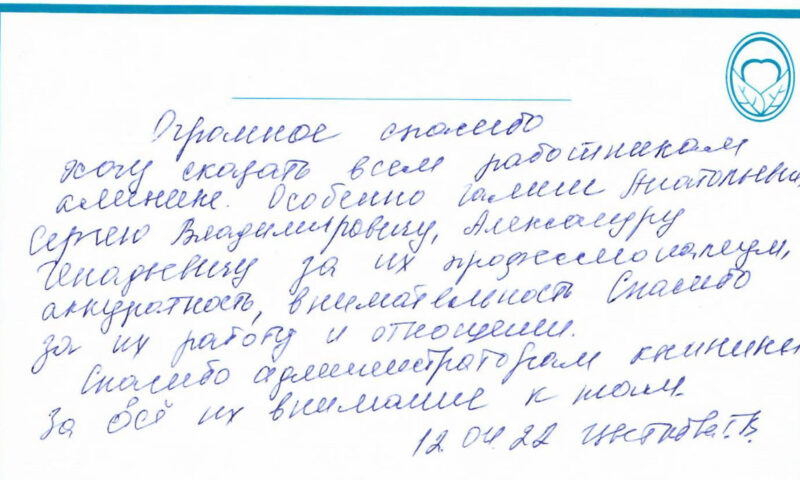 Огромное спасибо
хочу сказать всем работникам
клинике. Особенно Галине Анатольевн
Сергею Владимировичу, Александру
Генадьевичу за их професссионализм,
аккуратность, внимательность Спасибо
за их работу и отношении.
Спасибо администраторам клиники
За всё их внимание к нам.
12.04.22